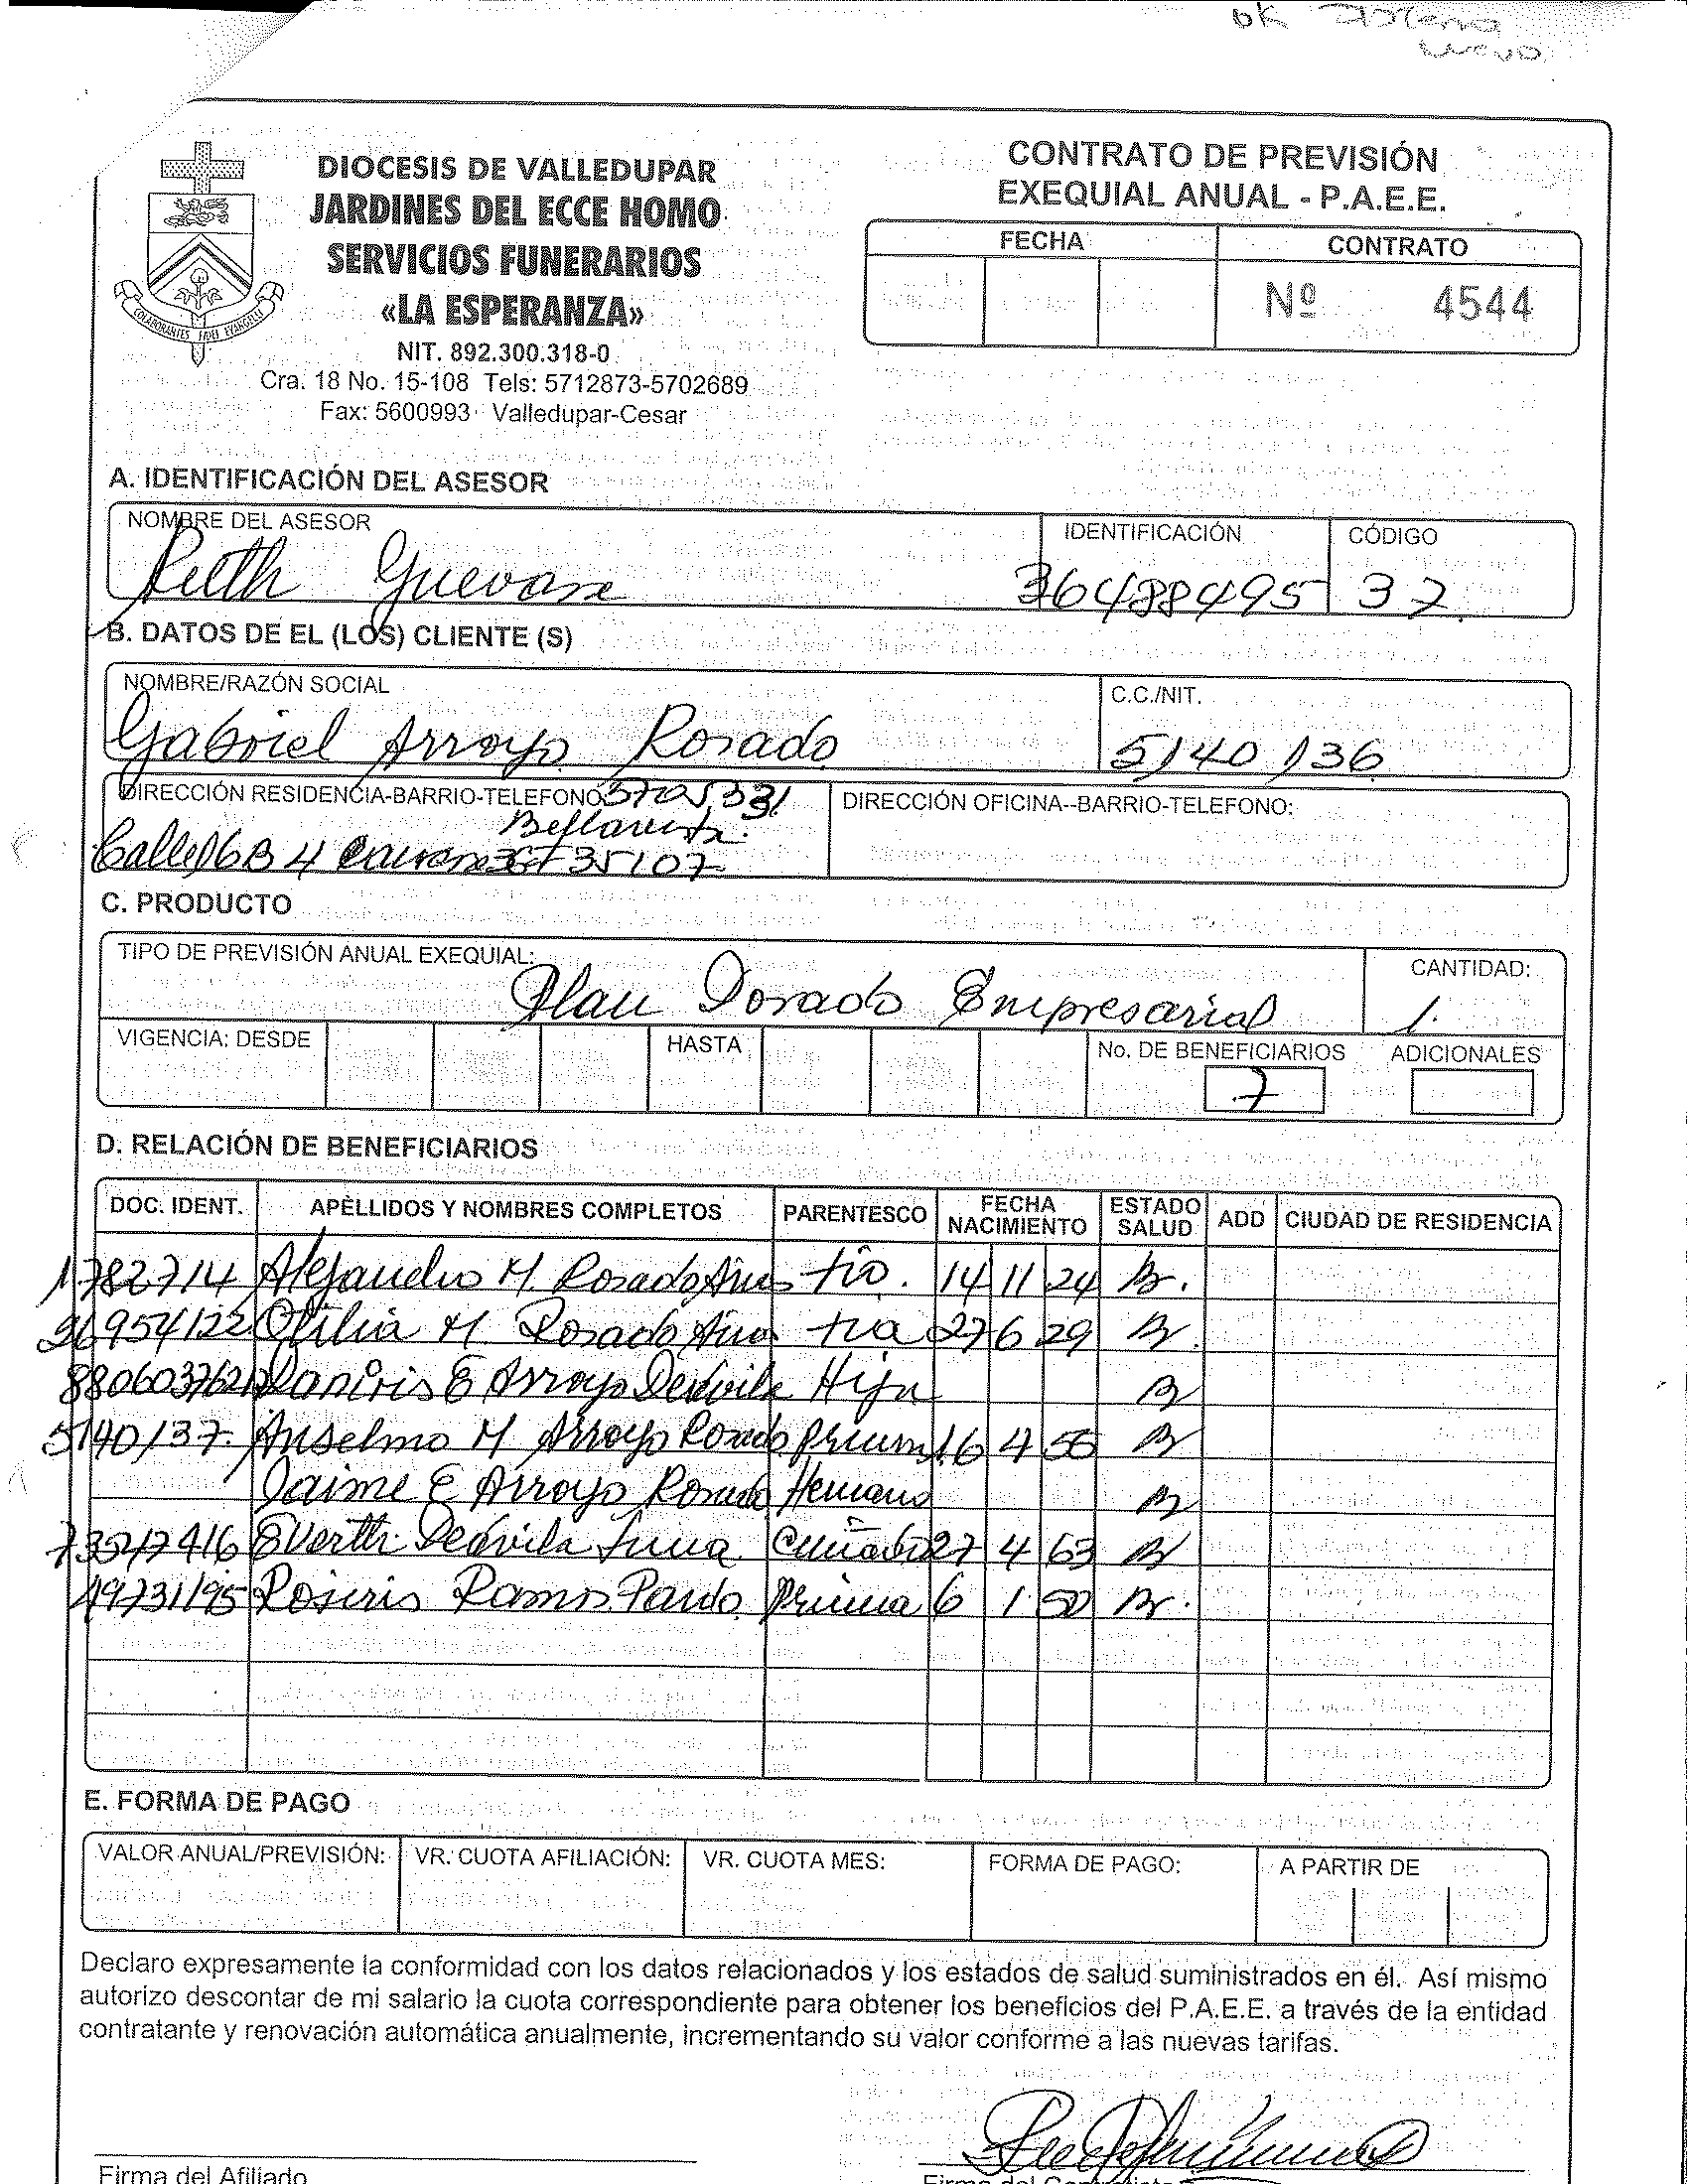 OK
nuevo
DIOCESIS DE VALLEDUPAR
JARDINES DEL ECCE HOMO
SERVICIOS FUNERARIOS
«LA ESPERANZA»
NIT. 892.300.318-0
Cra. 18 No. 15-108 Tels: 5712873-5702689
Fax: 5600993 Valledupar-Cesar
COLABORANTES FIDEI EVANGELII
CONTRATO DE PREVISIÓN
EXEQUIAL ANUAL - P.A.E.E.
FECHA CONTRATO
Nº 4544
A. IDENTIFICACIÓN DEL ASESOR
NOMBRE DEL ASESOR IDENTIFICACIÓN CÓDIGO
Ruth Guevara 36488495 37
B. DATOS DE EL (LOS) CLIENTE (S)
NOMBRE/RAZÓN SOCIAL C.C./NIT.
Gabriel Arroyo Rosado 5140136
DIRECCIÓN RESIDENCIA-BARRIO-TELEFONO: 5705331 DIRECCIÓN OFICINA--BARRIO-TELEFONO:
Bellavista
Calle 16B 4
C. PRODUCTO
TIPO DE PREVISIÓN ANUAL EXEQUIAL: CANTIDAD:
Plan Dorado Empresarial 1.
VIGENCIA: DESDE HASTA No. DE BENEFICIARIOS ADICIONALES
7
D. RELACIÓN DE BENEFICIARIOS
DOC. IDENT. APELLIDOS Y NOMBRES COMPLETOS PARENTESCO FECHA NACIMIENTO ESTADO SALUD ADD CIUDAD DE RESIDENCIA
1782714 Alejandro M. Rosado tio. 14 11 24 B.
26954122 Ofilia M Rosado tia 27 6 29 B.
8806037621 E Arroyo Deávila Hija B
5140137. Anselmo M Arroyo Rosado primo 16 4 55 B
Jaime E Arroyo Rosado Hermano B
Everth Deávila Luna Cuñado 27 4 63 B
49731195 Rosiris Ramos Pardo Prima 6 1 50 B.
E. FORMA DE PAGO
VALOR ANUAL/PREVISIÓN: VR. CUOTA AFILIACIÓN: VR. CUOTA MES: FORMA DE PAGO: A PARTIR DE
Declaro expresamente la conformidad con los datos relacionados y los estados de salud suministrados en él. Así mismo
autorizo descontar de mi salario la cuota correspondiente para obtener los beneficios del P.A.E.E. a través de la entidad
contratante y renovación automática anualmente, incrementando su valor conforme a las nuevas tarifas.
Firma del Afiliado